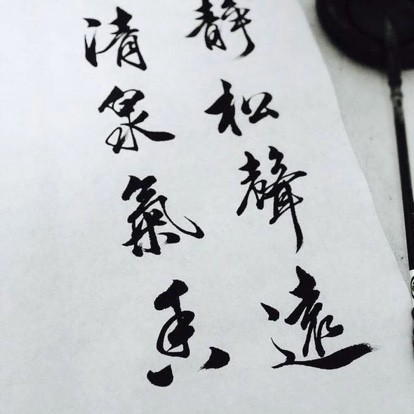 靜松聲遠
清泉氣香